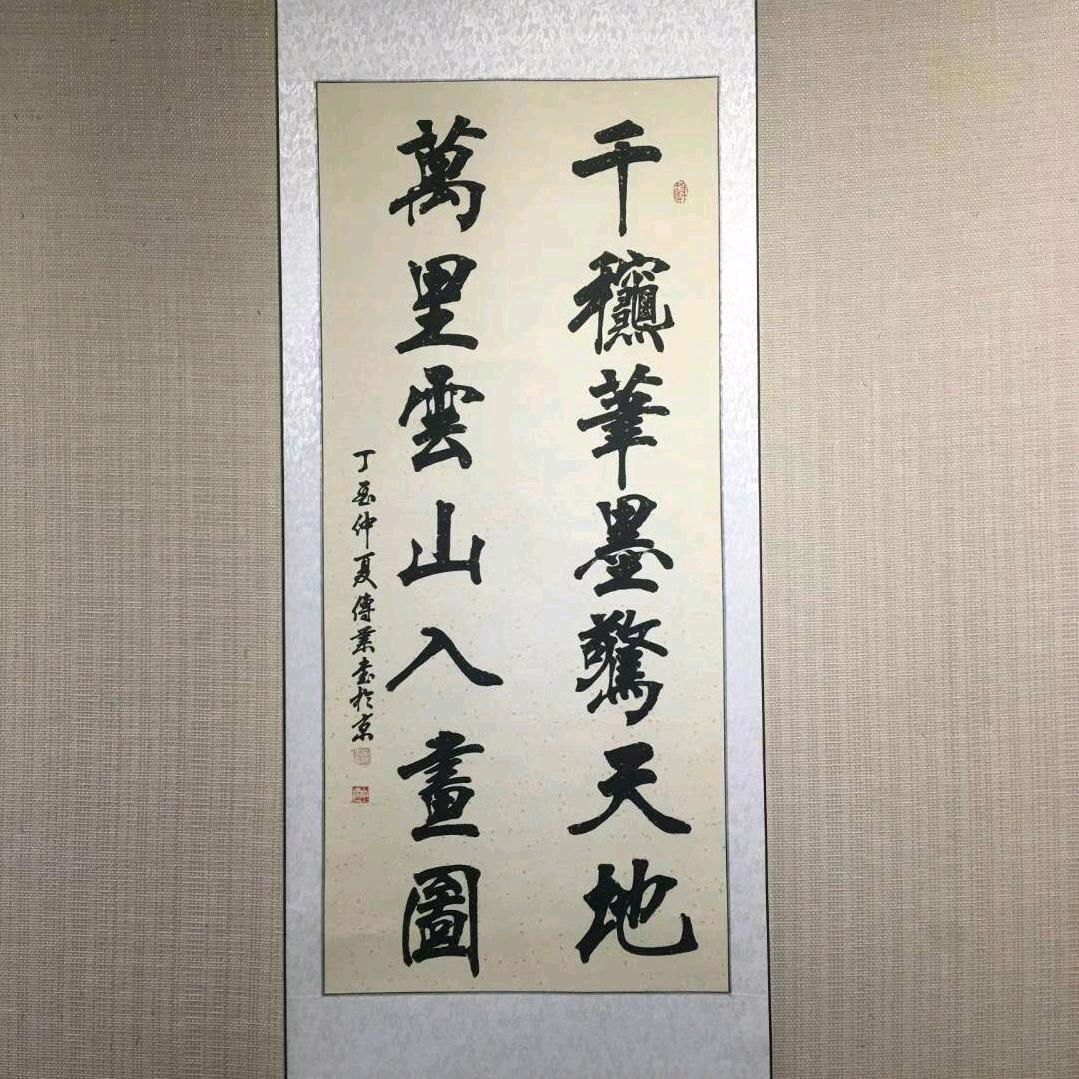 千龝筆墨驚天地
萬里雲山入畫圖
丁酉仲夏傳業書於京